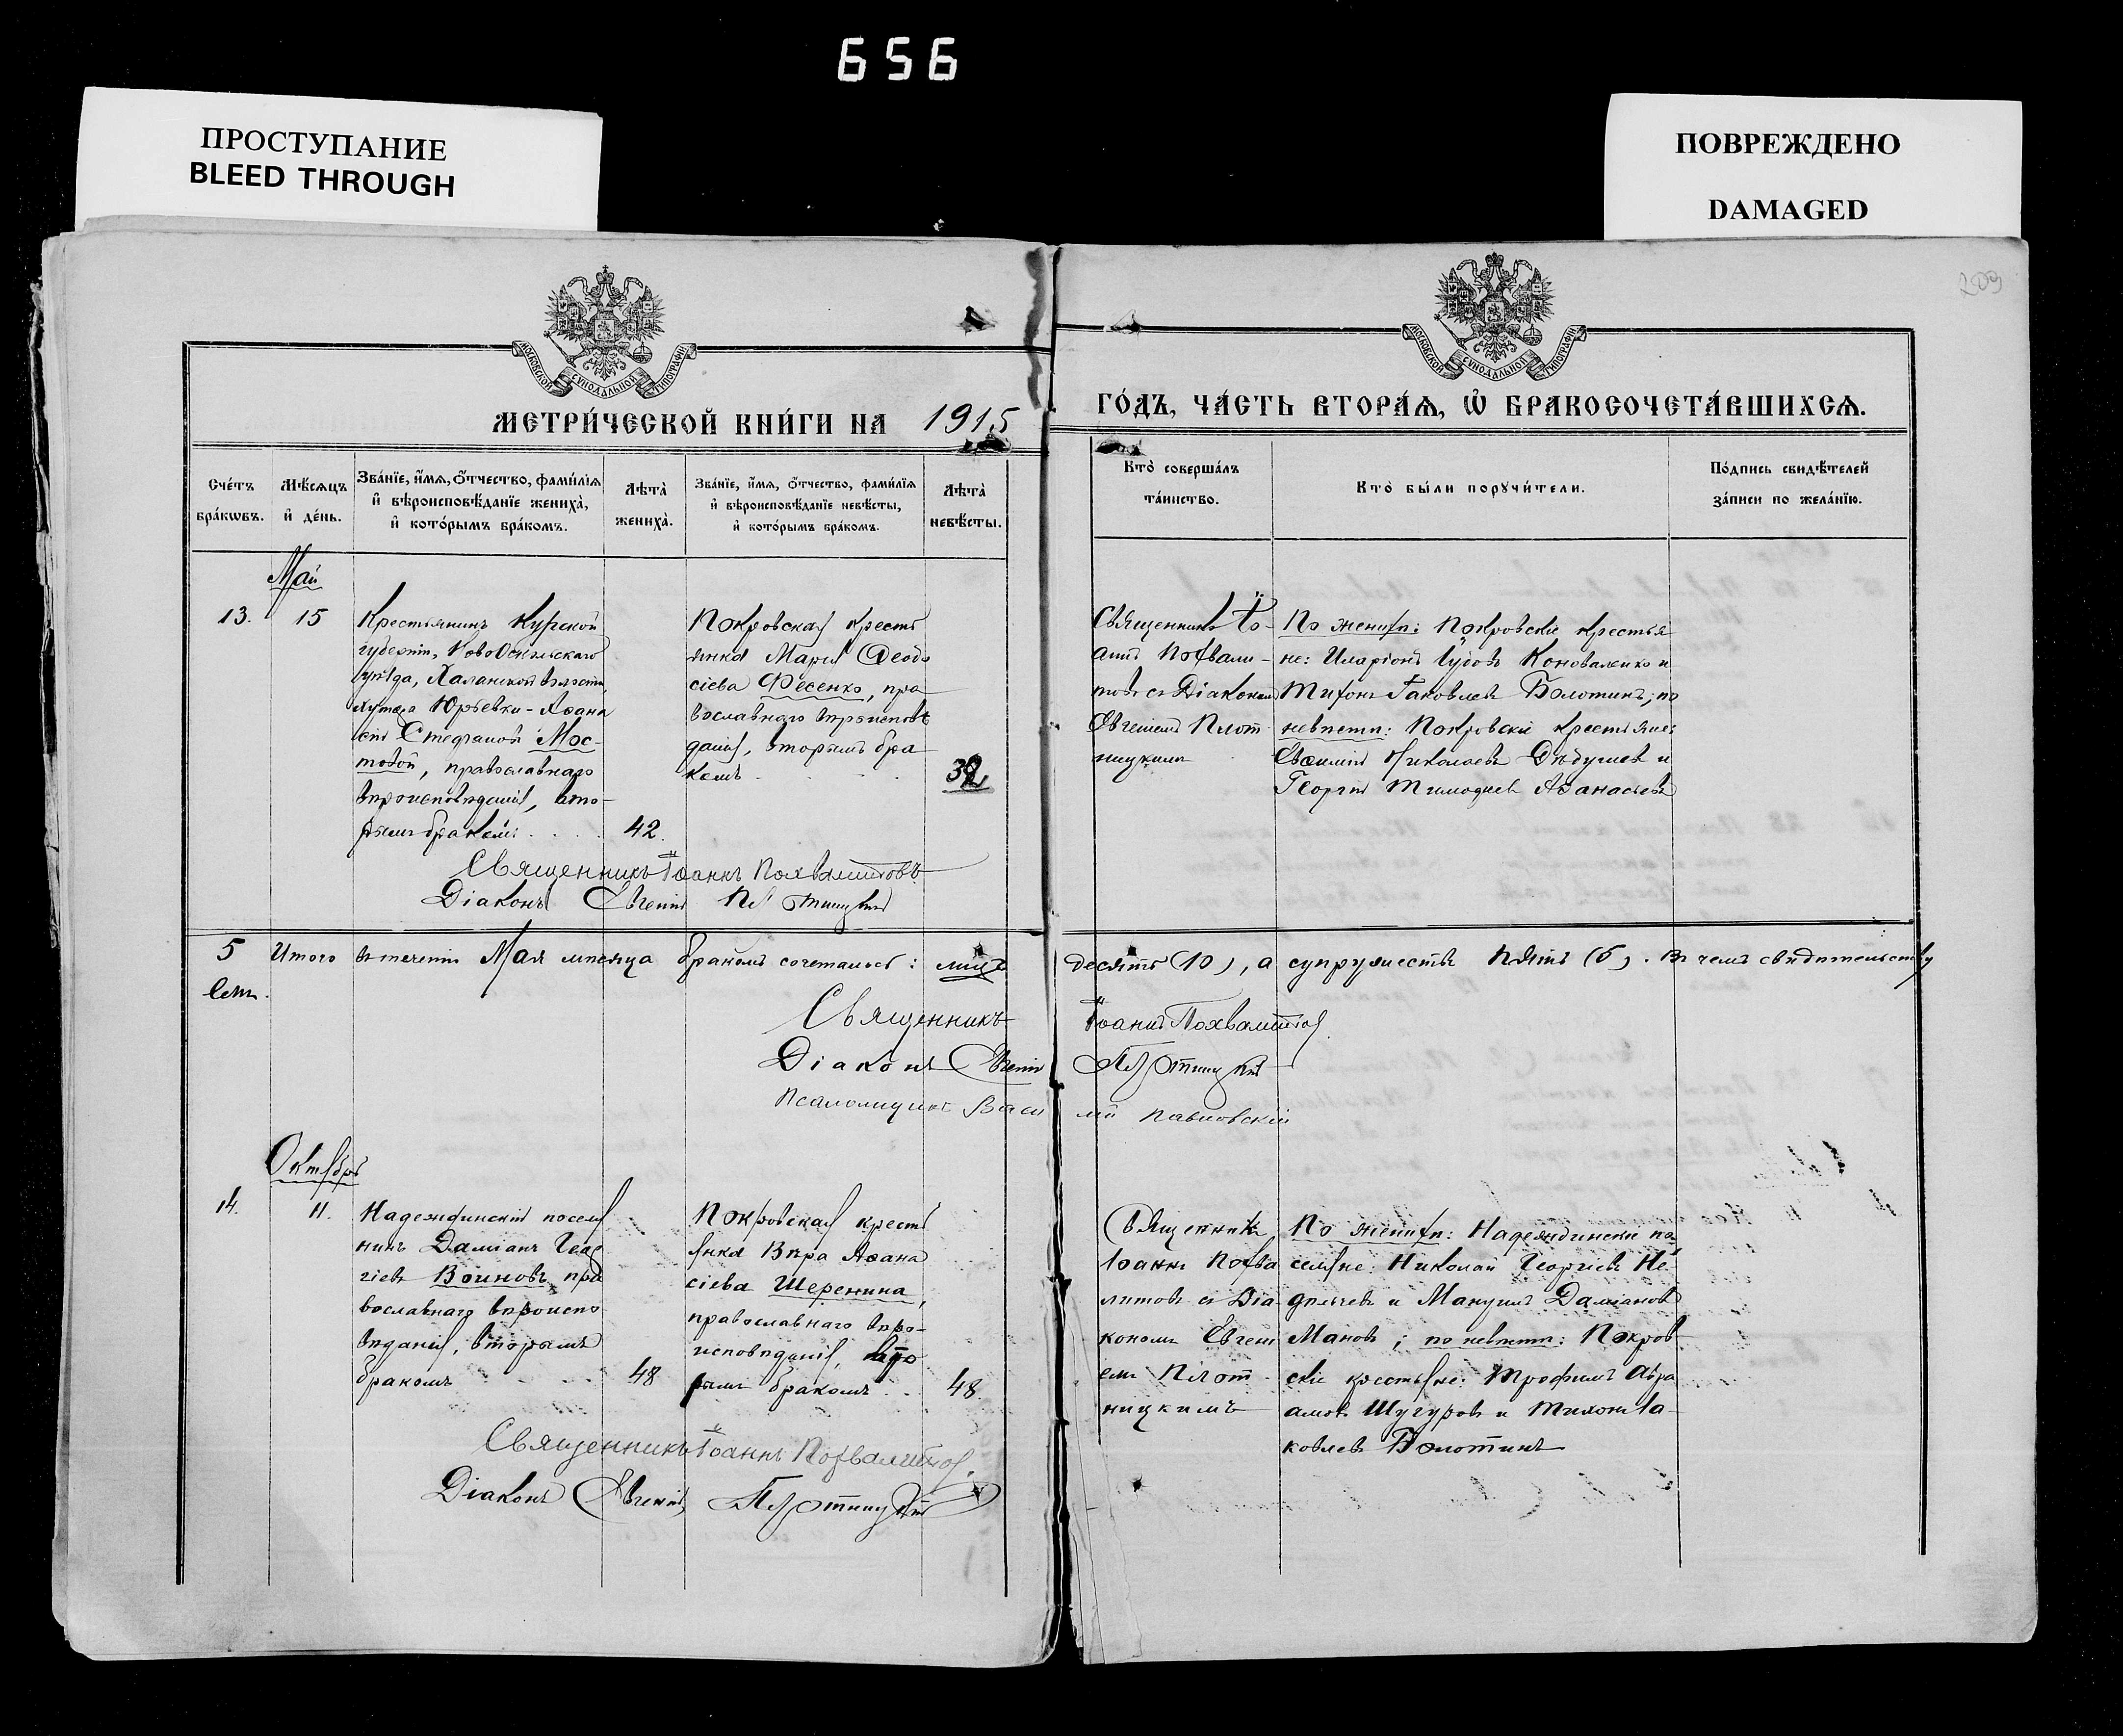 656
ПРОСТУПАНИЕ
BLEED THROUGH
ПОВРЕЖДЕНО
DAMAGED
209
МОСКОВСКОЙ СѴНОДАЛЬНОЙ ТИПОГРАФІИ
МОСКОВСКОЙ СѴНОДАЛЬНОЙ ТИПОГРАФІИ
МЕТРИ́ЧЕСКОЙ КНИ́ГИ НА 1915
ГО́ДЪ, ЧА́СТЬ ВТОРА́Ѧ, Ѽ БРАКОСОЧЕТА́ВШИХСѦ.
Сче́тъ
бра́кѡвъ.
Мѣ́сѧцъ
и҆ де́нь.
Зва́нїе, и҆́мѧ, ѻ҆́тчество, фами́лїѧ
и҆ вѣроисповѣ́данїе жениха̀,
и҆ кото́рымъ бра́комъ.
Лѣ́та̀
жениха̀.
Зва́нїе, и҆́мѧ, ѻ҆́тчество, фами́лїѧ
и҆ вѣроисповѣ́данїе невѣ́сты,
и҆ кото́рымъ бра́комъ.
Лѣ́та̀
невѣ́сты.
Кто̀ соверша́лъ
та́инство.
Кто̀ бы́ли порꙋчи́тели.
По́дпись свидѣ́телей
за́писи по жела́нїю.
Май
13. 15
Крестьянинъ Курской
губерніи, НовоОскольскаго
уѣзда, Халанской волости,
хутора Юрьевки - Аѳана
сій Стефановъ Мос-
товой, православнаго
вѣроисповѣданія, вто-
рымъ бракомъ . . . . 42.
Покровская кресть
янка Марія Ѳеодо
сіева Фесенко, пра
вославнаго вѣроисповѣ
данія, вторымъ бра
комъ . . . . 32
Священникъ Іо-
аннъ Похвали-
товъ съ Діакономъ
Евгеніемъ Плот-
ницкимъ
По женихѣ: Покровскіе крестья
не: Иларіонъ Іудовъ Коноваленко и
Тихонъ Іаковлевъ Болотинъ; по
невѣстѣ: Покровскіе крестьяне:
Евѳимій Николаевъ Дѣдушевъ и
Георгій Тимоѳеевъ Аѳанасьевъ
Священникъ Іоаннъ Похвалитовъ
Діаконъ Евгеній Плотницкій
5 Итого въ теченіи Мая мѣсяца бракомъ сочеталось: лицъ десять (10), а супружествъ пять (5). Въ чемъ свидѣтельству
емъ.
Священникъ Іоаннъ Похвалитовъ
Діаконъ Евгеній Плотницкій
Псаломщикъ Васи лій Павловскій
Октябрь
14. 11.
Надеждинскій поселя
нинъ Даміанъ Геор
гіевъ Воиновъ, пра
вославнаго вѣроиспо
вѣданія, вторымъ
бракомъ . . . . 48
Покровская кресть
янка Вѣра Аѳана
сіева Шеренина,
православнаго вѣро-
исповѣданія, вто
рымъ бракомъ . . 48.
Священникъ
Іоаннъ Похва
литовъ съ Діа-
кономъ Евгені
емъ Плот-
ницкимъ
По женихѣ: Надеждинскіе по-
селяне: Николай Георгіевъ Не-
дѣльчевъ и Мануилъ Даміановъ
Мановъ; по невѣстѣ: Покров
скіе крестьяне: Трофимъ Авра
амовъ Шугуровъ и Тихонъ Іа-
ковлевъ Болотинъ
Священникъ Іоаннъ Похвалитовъ.
Діаконъ Евгеній Плотницкій